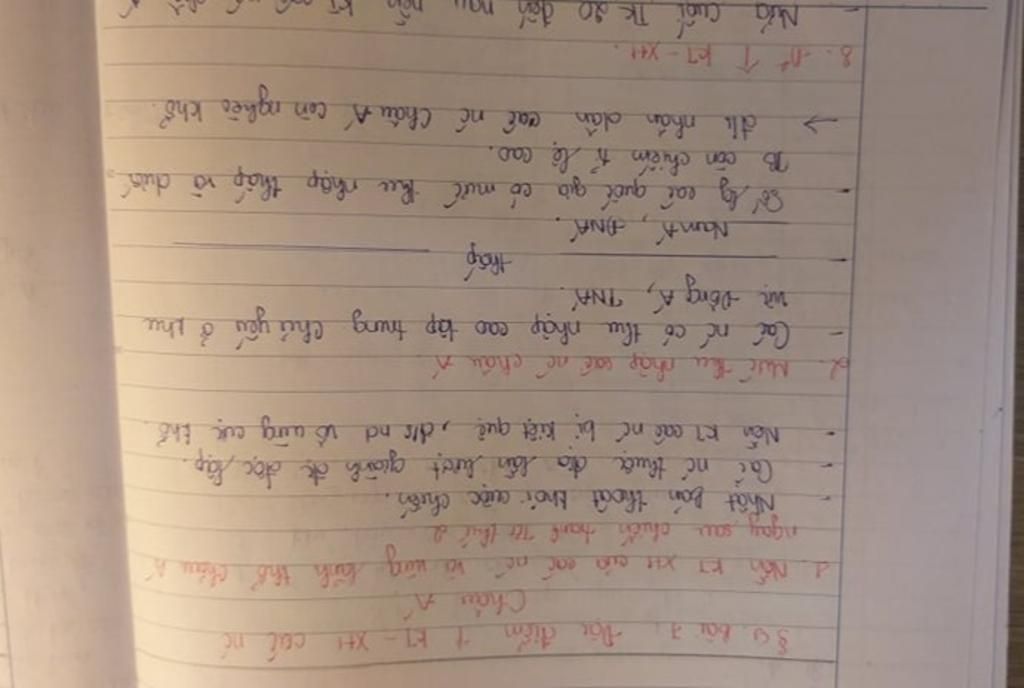 84. Bài 7: Đặc điểm ↑ KT - XH các nc
Châu Á
1. Nền KT XH của các nc và vùng lãnh thổ châu Á
ngay sau chiến tranh TG thứ 2
- Nhật bản thoát khỏi cuộc chiến.
- Các nc thuộc địa lần lượt giành đk độc lập.
- Nền KT các nc bị kiệt quệ, đ/s nd vô cùng cực khổ.
2. Mức thu nhập các nc châu Á
- Các nc có thu nhập cao tập trung chủ yếu ở khu
vực Đông Á, TNÁ.
- thấp
Nam Á, ĐNÁ.
- Số lg các quốc gia có mức thu nhập thấp và dưới
TB còn chiếm tỉ lệ cao.
→ đ/s nhân dân các nc Châu Á còn nghèo khổ.
3. ↑ KT - XH.
- Nửa cuối TK 20 đến nay nền KT các nc